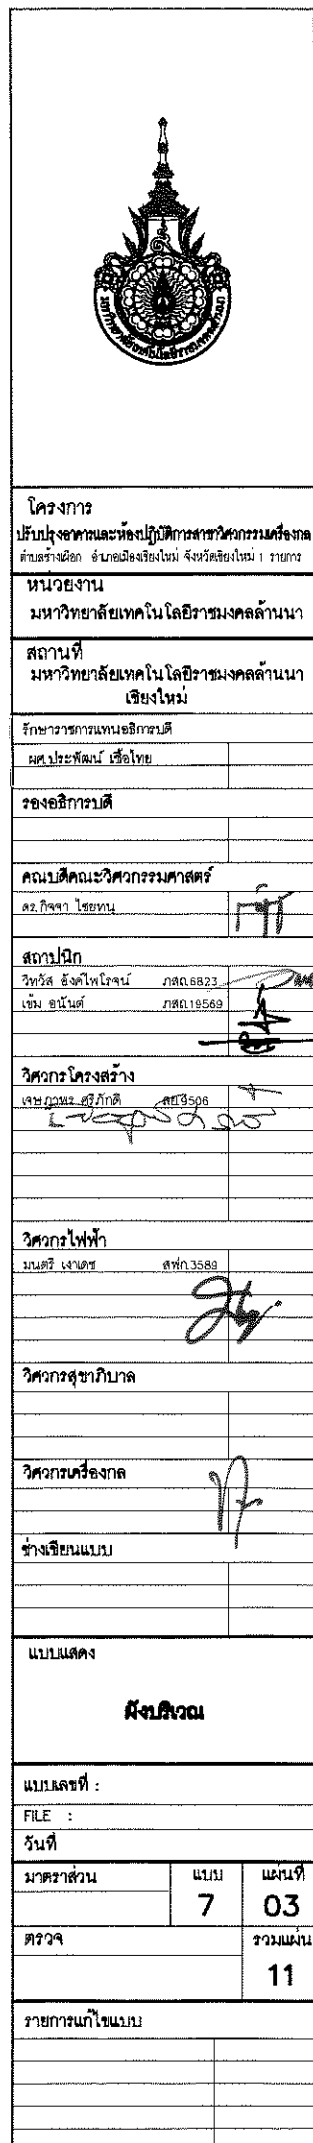 มหาวิทยาลัยเทคโนโลยีราชมงคลล้านนา
โครงการ
ปรับปรุงอาคารและห้องปฏิบัติการสาขาวิศวกรรมเครื่องกล
ตำบลช้างเผือก อำเภอเมืองเชียงใหม่ จังหวัดเชียงใหม่ 1 รายการ
หน่วยงาน
มหาวิทยาลัยเทคโนโลยีราชมงคลล้านนา
สถานที่
มหาวิทยาลัยเทคโนโลยีราชมงคลล้านนา
เชียงใหม่
รักษาราชการแทนอธิการบดี
ผศ.ประพัฒน์ เชื้อไทย
รองอธิการบดี
คณบดีคณะวิศวกรรมศาสตร์
ดร.กิจจา ไชยทนุ
สถาปนิก
วิทวัส อังค์ไพโรจน์ ภสถ.6823
เข้ม อนันต์ ภสถ.19569
วิศวกรโครงสร้าง
เจษฎาพร ศรีภักดี สย.9506
วิศวกรไฟฟ้า
มนตรี เงาเดช สฟก.3589
วิศวกรสุขาภิบาล
วิศวกรเครื่องกล
ช่างเขียนแบบ
แบบแสดง
ผังบริเวณ
แบบเลขที่ :
FILE :
วันที่
มาตราส่วน แบบ แผ่นที่
7 03
ตรวจ รวมแผ่น
11
รายการแก้ไขแบบ